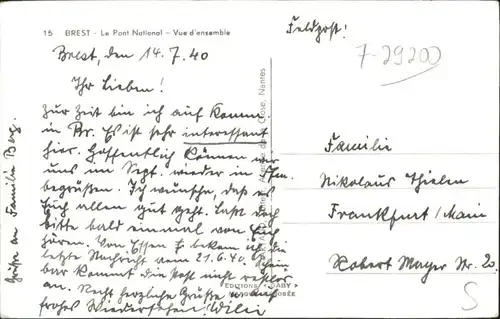 15 BREST - Le Pont National - Vue d'ensemble
Feldpost!
7-29200
Brest, den 14.7.40
Ihr Lieben!
Zur Zeit bin ich auf Komm.
in Br. Es ist sehr interessant
hier. Hoffentlich können wir
uns im Sept. wieder in Ffm.
begrüßen. Ich wünsche, daß es
Euch allen gut geht. Laßt doch
bitte bald einmal von Euch
hören. Von Essen bekam ich die
letzte Nachricht vom 21.6.40. Schein
bar kommt die Post nicht
an. Recht herzliche Grüße u. auf
frohes Wiedersehen, Willi
Grüße an Familie Berg.
Nantes
EDITIONS "GABY"
Familie
Nikolaus Thielen
Frankfurt/Main
Robert Mayer Str. 20
S